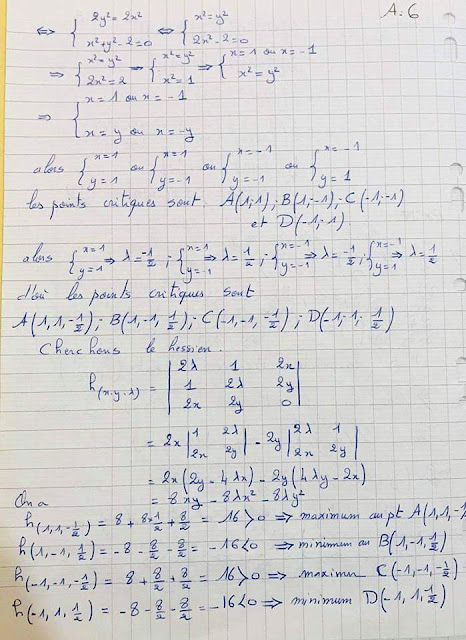 A.6
⇔ { 2y² = 2x² ; x²+y²-2=0 ⇔ { x²=y² ; 2x²-2=0
⇒ { x²=y² ; 2x²=2 ⇒ { x²=y² ; x²=1 ⇒ { x=1 ou x=-1 ; x²=y²
⇒ { x=1 ou x=-1 ; x=y ou x=-y
alors { x=1 ; y=1 ou { x=1 ; y=-1 ou { x=-1 ; y=-1 ou { x=-1 ; y=1
les points critiques sont A(1,1); B(1,-1) - C(-1,-1)
et D(-1,-1)
alors { x=1 ; y=1 ⇒ λ=-1/2 ; { x=1 ; y=-1 ⇒ λ=1/2 ; { x=-1 ; y=-1 ⇒ λ=-1/2 ; { x=-1 ; y=1 ⇒ λ=1/2
d'où les points critiques sont
A(1,1,-1/2); B(1,-1,1/2); C(-1,-1,-1/2); D(-1,1,1/2)
Cherchons le hessien.
h(x.y.λ) = | 2λ 1 2x ; 1 2λ 2y ; 2x 2y 0 |
= 2x | 1 2λ ; 2x 2y | - 2y | 2λ 1 ; 2x 2y |
= 2x(2y - 4λx) - 2y(4λy - 2x)
On a = 8xy - 8λx² - 8λy²
h(1,1,-1/2) = 8 + 8x1/2 + 8/2 = 16 > 0 ⇒ maximum au pt A(1,1,-
h(1,-1,1/2) = -8 - 8/2 - 8/2 = -16 < 0 ⇒ minimum au B(1,-1,1/2)
h(-1,-1,-1/2) = 8 + 8/2 + 8/2 = 16 > 0 ⇒ maximum C(-1,-1,-1/2)
h(-1,1,1/2) = -8 - 8/2 - 8/2 = -16 < 0 ⇒ minimum D(-1,1,1/2)